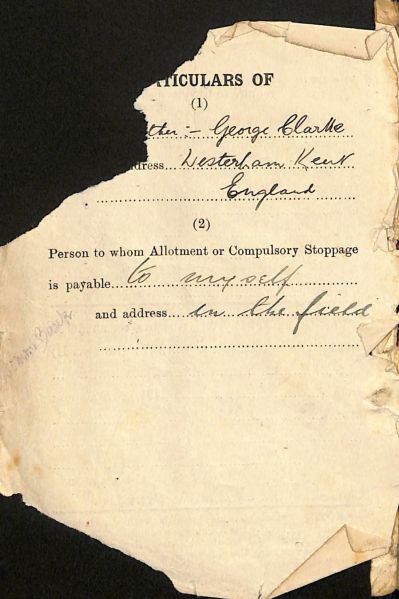 TICULARS OF
(1)
ther:- George Clarke
dress Westerham Kent
England
(2)
Person to whom Allotment or Compulsory Stoppage
is payable to myself
and address in the field